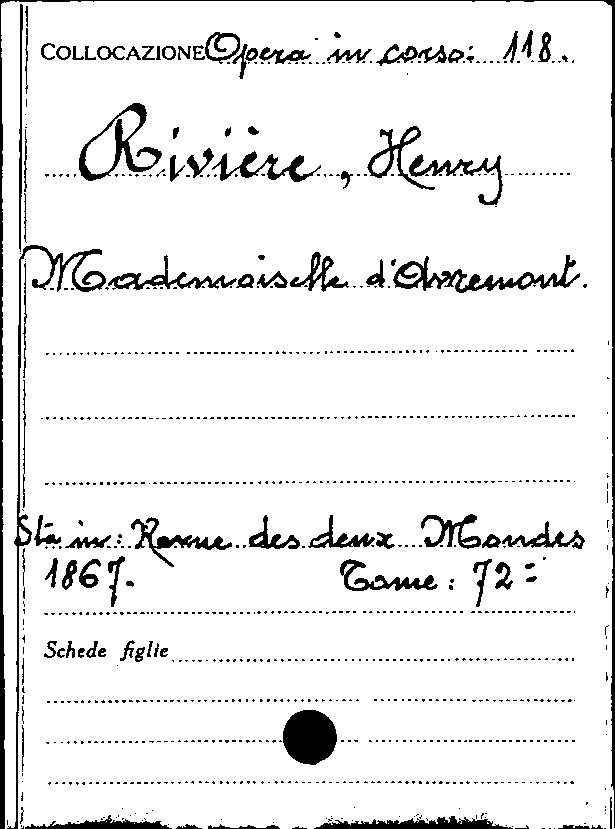 COLLOCAZIONE Opera in corso: 118.
Rivière, Henry
Mademoiselle d'Avremont.
Sta in: Revue des deux Mondes
1867. Tome: 72=
Schede figlie